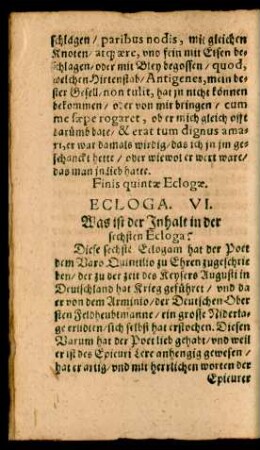 schlagen/ paribus nodis, mit gleichen
Knoten/ atq; ære, vnd fein mit Eisen be-
schlagen/ oder mit Bley begossen/ quod,
welchen Hirtenstab/ Antigenes, mein be-
ster Gesell, non tulit, hat jn nicht können
bekommen/ oder von mir bringen/ cum
me sæpe rogaret, ob er mich gleich offt
darümb bate/ & erat tum dignus ama-
ri, er war damals wirdig/ das ich jn jm ge-
schanckt hette/ oder wiewol er wert ware/
das man jn lieb hatte.
Finis quintæ Eclogæ.
ECLOGA. VI.
Was ist der Inhalt in der
sechsten Ecloga?
Diese sechste Eclogam hat der Poet
dem Varo Quintilio zu Ehren zugeschrie
ben/ der zu der zeit des Keysers Augusti in
Deutschland hat Krieg geführet/ vnd da
er von dem Arminio/ der Deutschen Ober
sten Feldheubtmanne/ ein grosse Niderla-
ge erlidten/ sich selbst hat erstochen. Diesen
Varum hat der Poet lieb gehabt/ vnd weil
er ist des Epicuri Lere anhengig gewesen/
hat er artig/ vnd mit herrlichen worten der
Epicurer